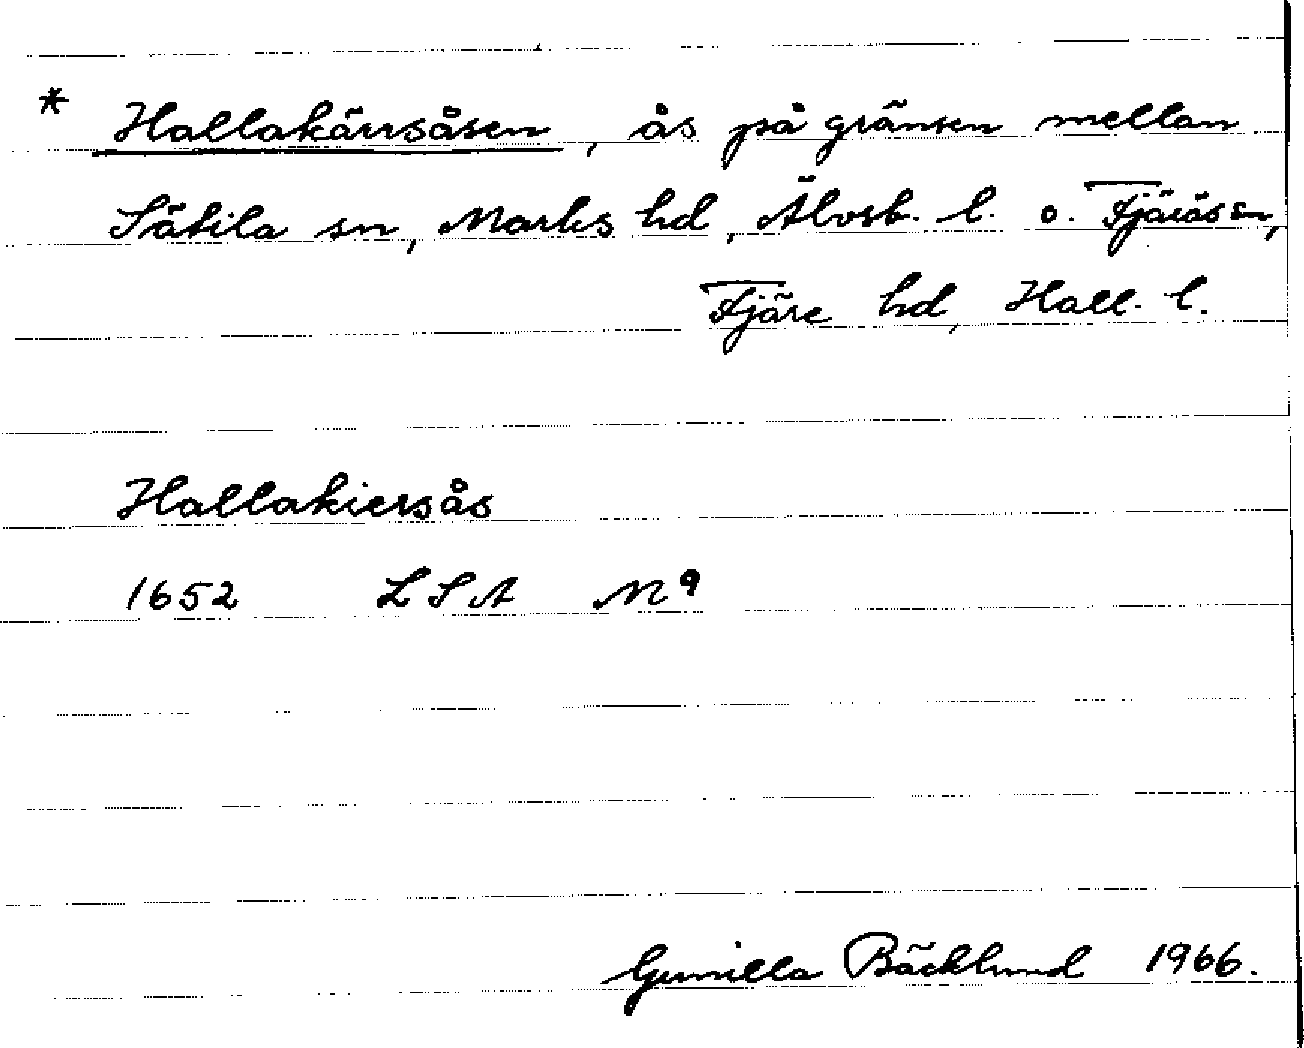 * Hallakärrsåsen, ås på gränsen mellan
Sätila sn, Marks hd, Älvsb. l. o. Fjärås sn,
Fjäre hd, Hall. l.
Hallakiersås
1652 LSA M⁹
Gunilla Bäcklund 1966.